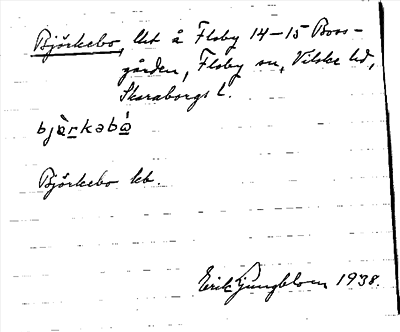 Björkebo, lht å Floby 14-15 Boos-
gården, Floby sn, Vilske hd,
Skaraborgs l.
bjö̀rkəbó
Björkebo kb.
Erik Ljungblom 1938.